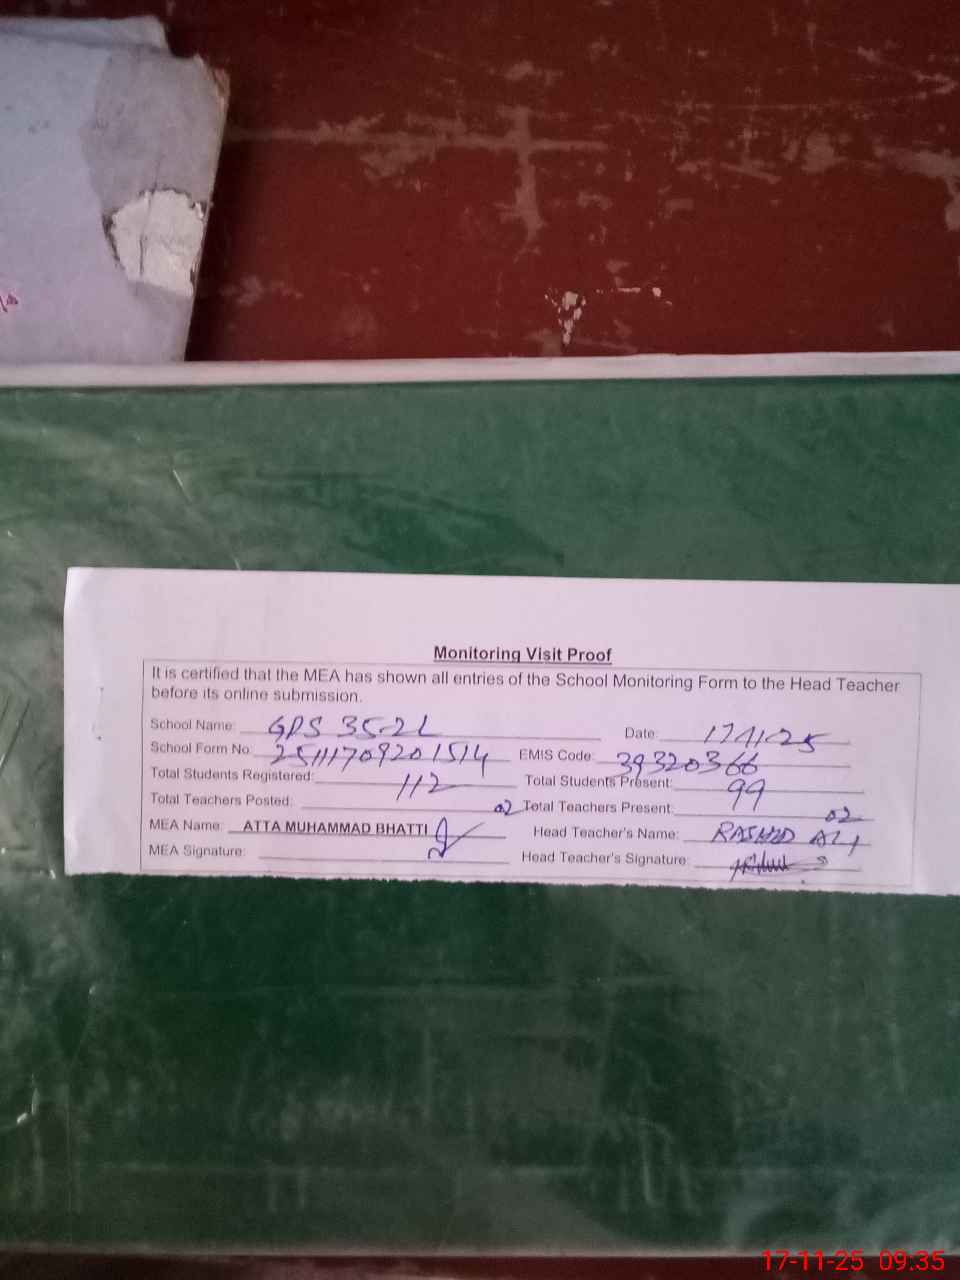 Monitoring Visit Proof
It is certified that the MEA has shown all entries of the School Monitoring Form to the Head Teacher
before its online submission.
School Name: GPS 35-2L Date: 17-11-25
School Form No: 25111709201514 EMIS Code: 39320366
Total Students Registered: 112 Total Students Present: 99
Total Teachers Posted: 02 Total Teachers Present: 02
MEA Name: ATTA MUHAMMAD BHATTI Head Teacher's Name: RASHID ALI
MEA Signature: Head Teacher's Signature:
17-11-25 09:35